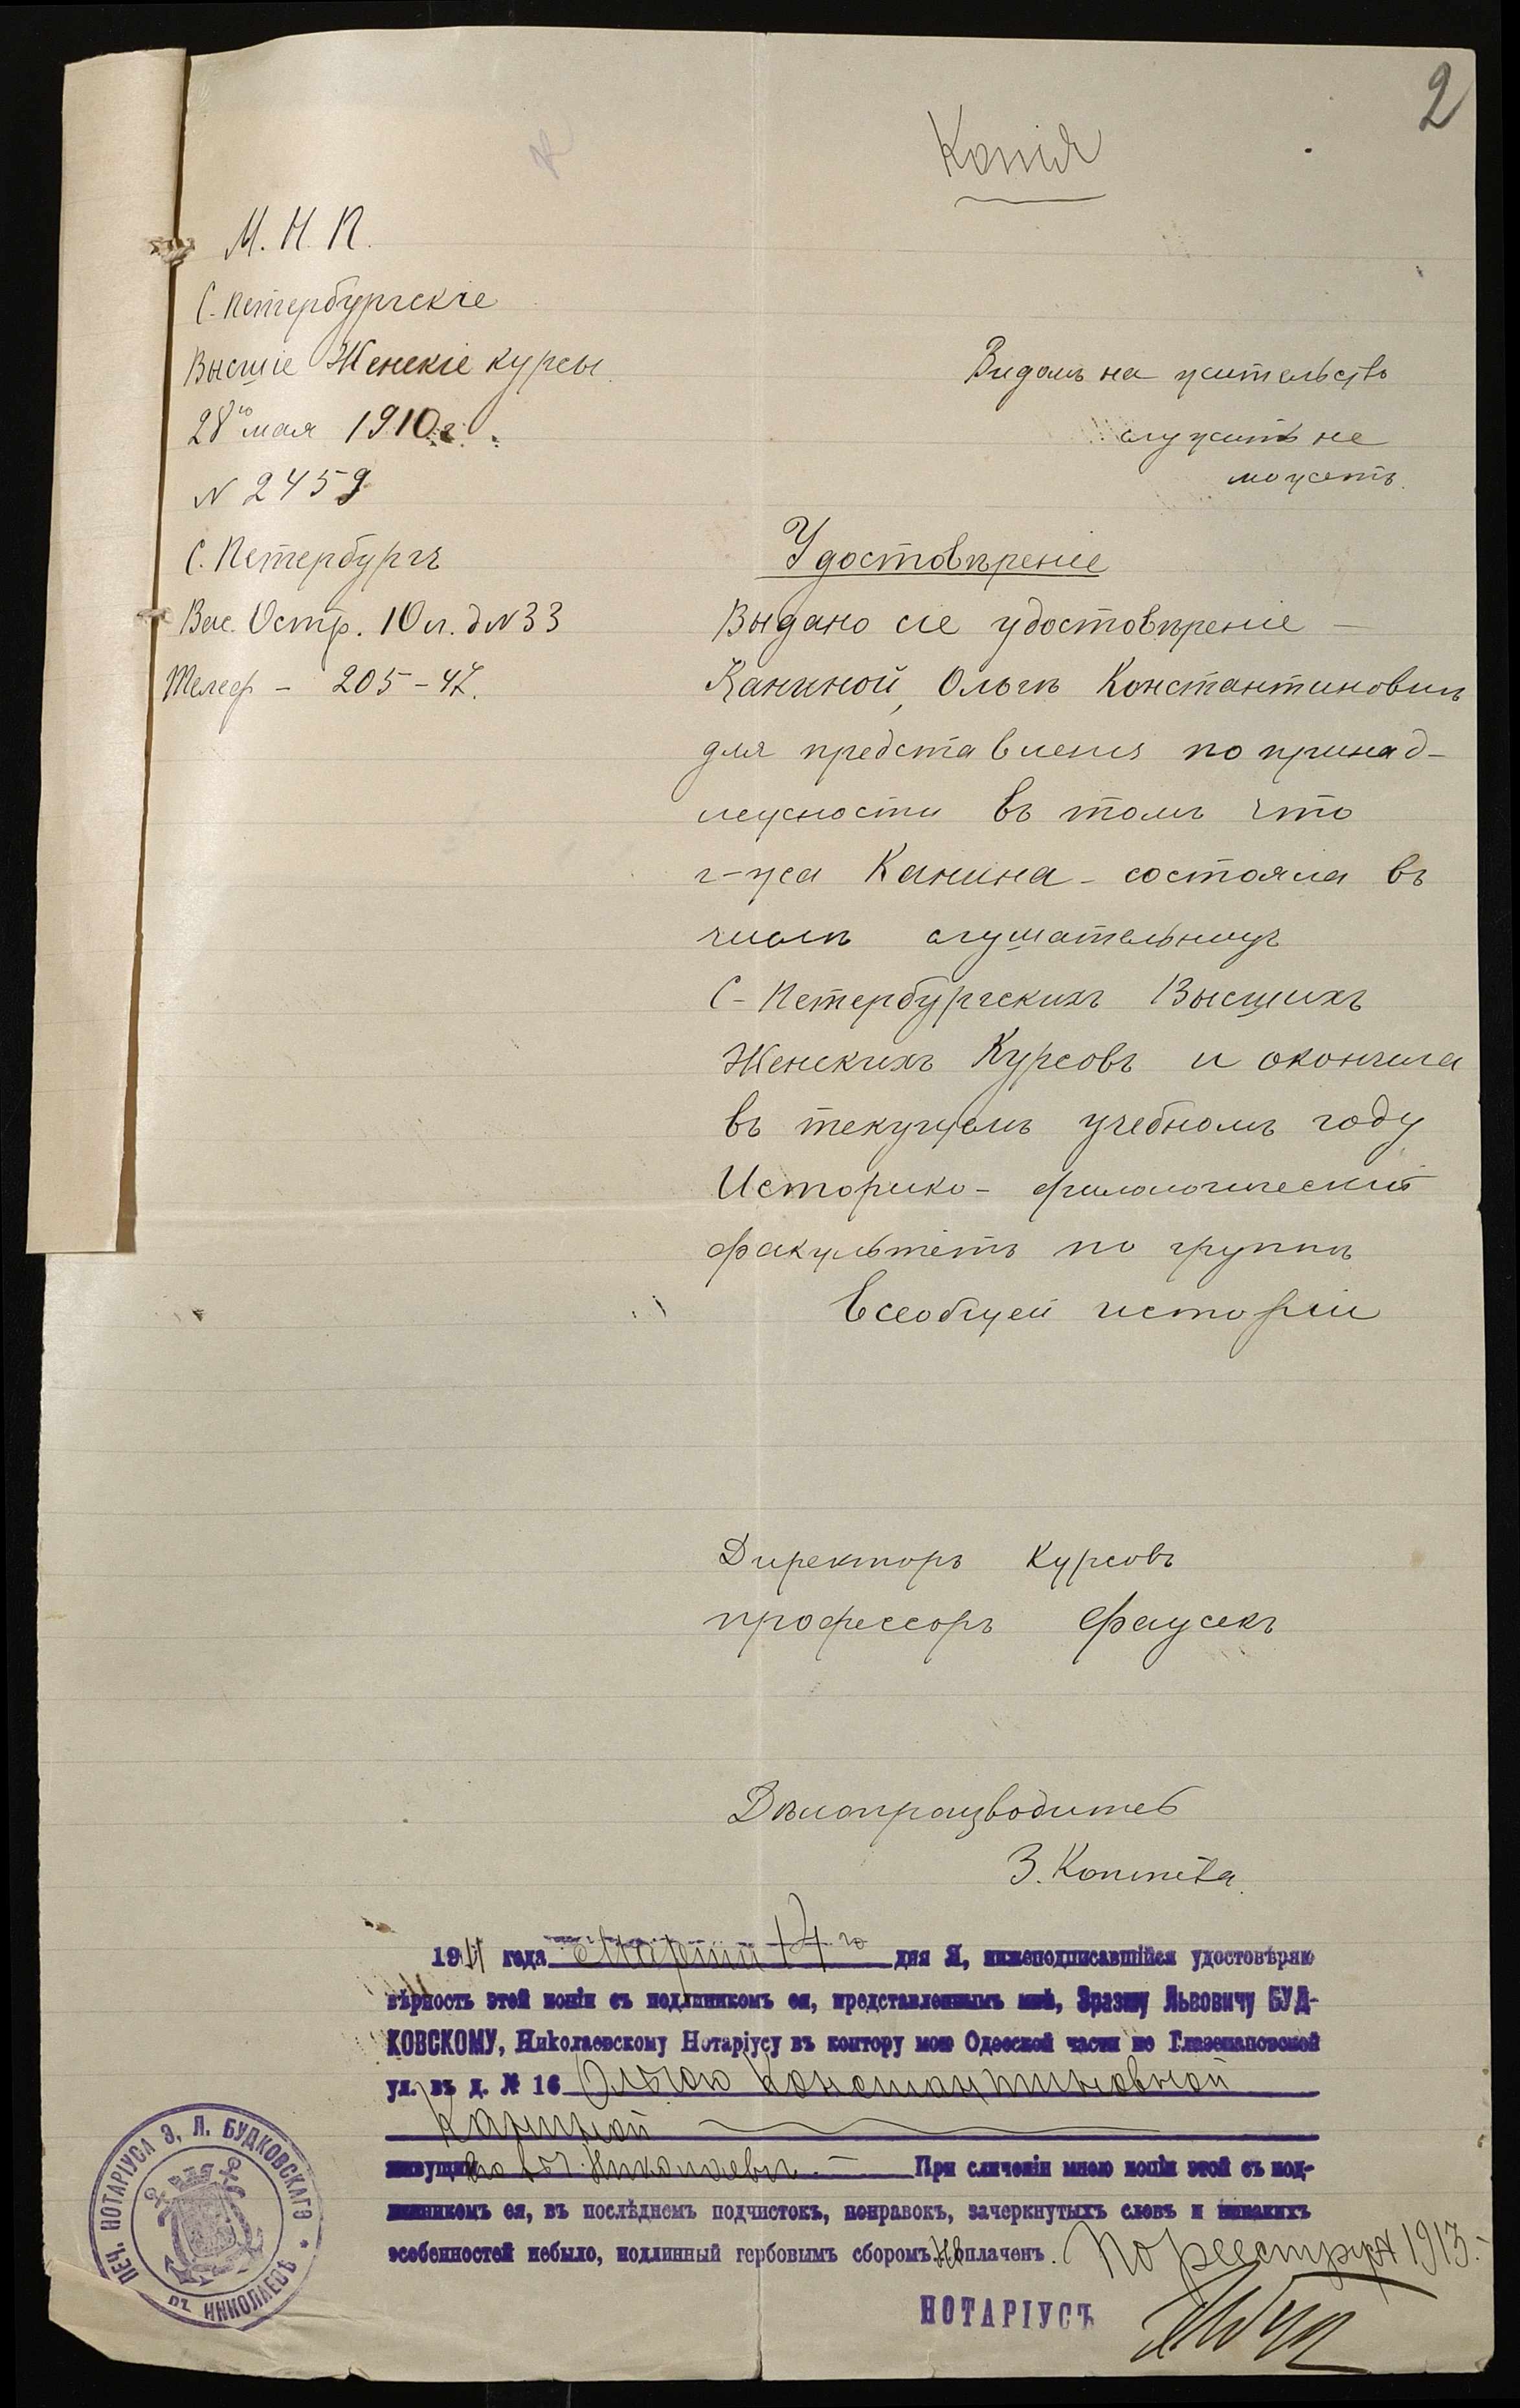 2
Копія
М. Н. П.
С.-Петербургскіе
Высшіе Женскіе курсы.
28го мая 1910 г.
№ 2459
С. Петербургъ
Вас. Остр. 10 л. д № 33
Телеф - 205-47.
Видомъ на жительство
служить не
можетъ.
Удостовѣреніе
Выдано сіе удостовѣреніе -
Каниной, Ольгѣ Константиновнѣ
для представленія по принад-
лежности въ томъ что
г-жа Канина - состояла въ
числѣ слушательницъ
С-Петербургскихъ Высшихъ
Женскихъ Курсовъ и окончила
въ текущемъ учебномъ году
Историко-филологическій
факультетъ по группѣ
Всеобщей исторіи
Директоръ Курсовъ
профессоръ Фаусекъ
Дѣлопроизводитель
З.
19 года 14го дня Я, нижеподписавшійся удостовѣряю
вѣрность этой копіи съ подлинникомъ ея, представленнымъ мнѣ, Эразму Львовичу БУД-
КОВСКОМУ, Николаевскому Нотаріусу въ контору мою Одесской части по Глазенаповской
ул. въ д. № 16 Ольгою Константиновной
Каниной
живущею въ г. Николаевѣ. - При сличеніи мною копіи этой съ под-
линникомъ ея, въ послѣднемъ подчистокъ, поправокъ, зачеркнутыхъ словъ и никакихъ
особенностей небыло, подлинный гербовымъ сборомъ не оплаченъ. По реестру № 1913.-
НОТАРІУСЪ
ПЕЧ. НОТАРІУСА Э. Л. БУДКОВСКАГО * ВЪ НИКОЛАЕВѢ